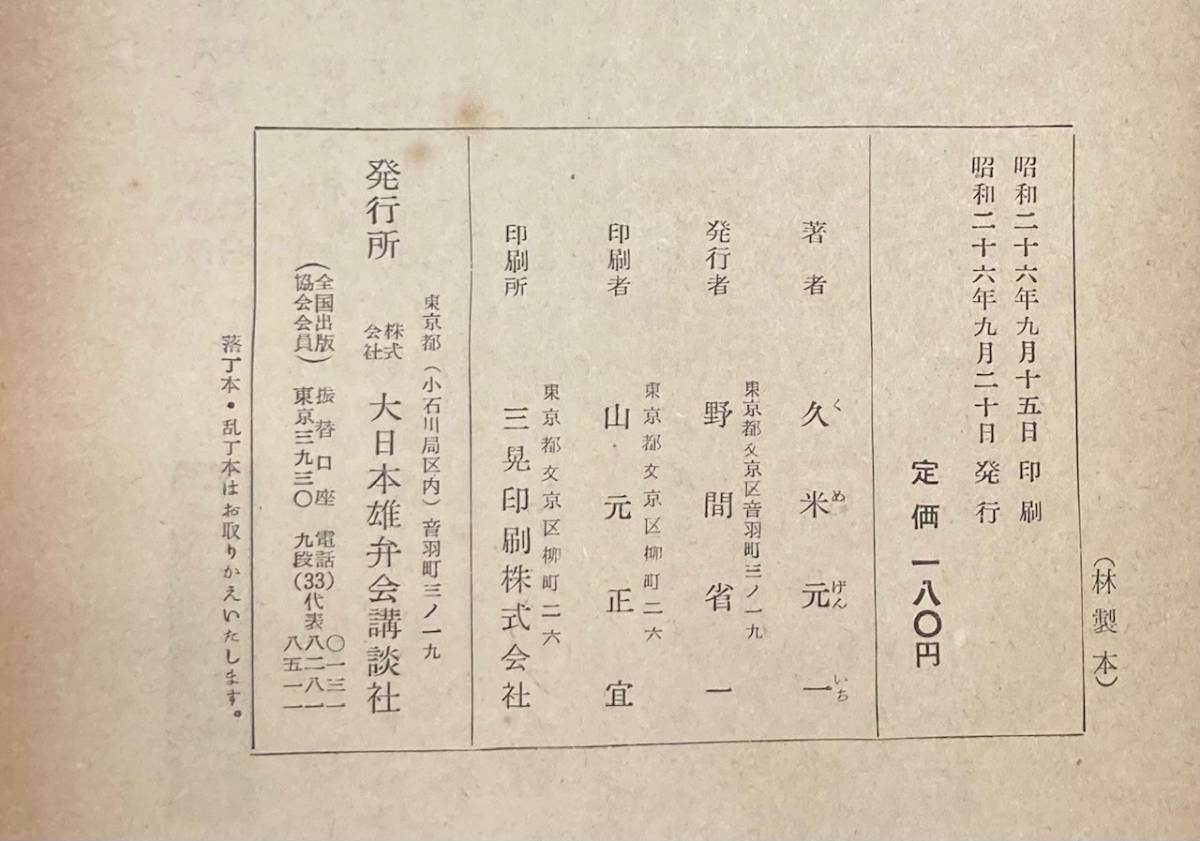 (林製本)
昭和二十六年九月十五日 印刷
昭和二十六年九月二十日 発行
定価 一八〇円
著者 久米元一
く め げん いち
東京都文京区音羽町三ノ一九
発行者 野間省一
東京都文京区柳町二六
印刷者 山元正宜
東京都文京区柳町二六
印刷所 三晃印刷株式会社
東京都(小石川局区内)音羽町三ノ一九
発行所 株式会社 大日本雄弁会講談社
(全国出版協会会員) 振替口座東京三九三〇 電話九段(33)代表〇一三一 八二八一 八五一一
落丁本・乱丁本はお取りかえいたします。